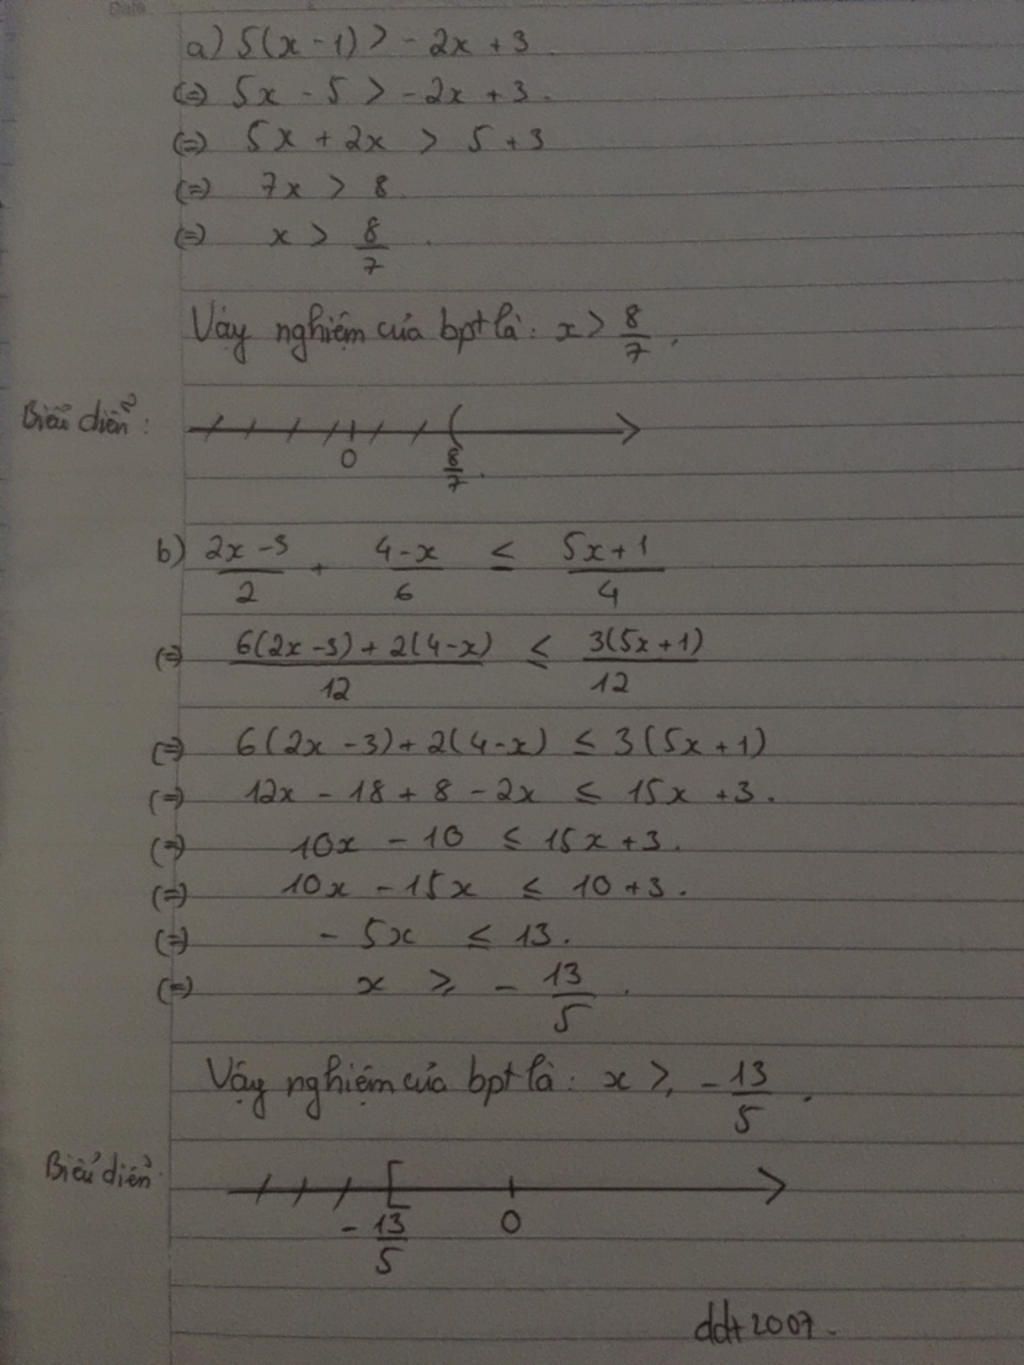 a) 5(x - 1) > - 2x + 3
(=) 5x - 5 > - 2x + 3.
(=) 5x + 2x > 5 + 3
(=) 7x > 8.
(=) x > 8/7.
Vậy nghiệm của bpt là: x > 8/7.
Biểu diễn:
0 8/7.
b) 2x - 3/2 + 4 - x/6 ≤ 5x + 1/4
(=) 6(2x - 3) + 2(4 - x)/12 ≤ 3(5x + 1)/12
(=) 6(2x - 3) + 2(4 - x) ≤ 3(5x + 1)
(=) 12x - 18 + 8 - 2x ≤ 15x + 3.
(=) 10x - 10 ≤ 15x + 3.
(=) 10x - 15x ≤ 10 + 3.
(=) - 5x ≤ 13.
(=) x ≥ - 13/5.
Vậy nghiệm của bpt là: x ≥ - 13/5.
Biểu diễn:
- 13/5 0
ddt2007.